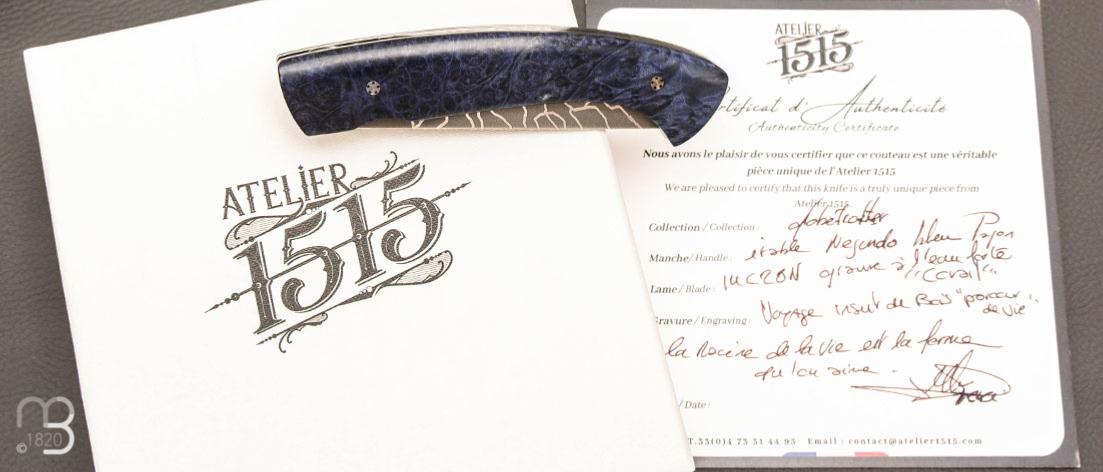 ATELIER
1515
ATELIER
1515
rtificat d'Authenticité
Authenticity Certificate
Nous avons le plaisir de vous certifier que ce couteau est une véritable
pièce unique de l'Atelier 1515
We are pleased to certify that this knife is a truly unique piece from
Atelier 1515.
Collection / Collection : Globetrotter
Manche/ Handle : érable Negundo bleu
Lame / Blade : 14C28N gravure à l'eau forte
"Corail"
ravure / Engraving : Voyage de Bois "
de vie"
la Racine de la vie est la forme
qu'on aime.
/ Date :
T.33(0)4 73 51 44 93 Email : contact@atelier1515.com
MB
©1820